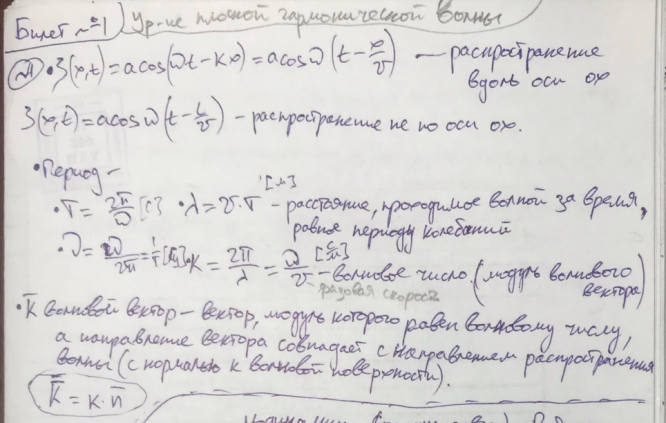 Билет №1 Ур-ие плоской гармонической волны
№1 • ξ(x,t) = a cos(ωt - kx) = a cos ω(t - x/v) — распространение
вдоль оси ox
ξ(x,t) = a cos ω(t - l/v) - распространение не по оси ox.
• Период -
• T = 2π/ω [с] • λ = v·T [м] - расстояние, проходимое волной за время,
равное периоду колебаний
• ν = ω/2π = 1/T [Гц] • K = 2π/λ = ω/v - волновое число (модуль волнового
вектора)
фазовая скорость
• k̄ волновой вектор - вектор, модуль которого равен волновому числу,
а направление вектора совпадает с направлением распространения
волны (с нормалью к волновой поверхности).
k̄ = k · n̄